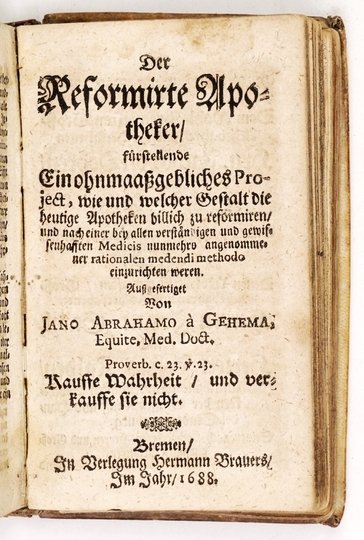 Der
Reformirte Apo-
theker/
fürstellende
Ein ohnmaaßgebliches Pro-
ject, wie und welcher Gestalt die
heutige Apotheken billich zu reformiren/
und nach einer bey allen verständigen und gewis-
senhafften Medicis nunmehro angenomme-
ner rationalen medendi methodo
einzurichten weren.
Außgefertiget
Von
JANO ABRAHAMO à GEHEMA,
Equite, Med. Doct.
Proverb. c. 23. ℣. 23.
Kauffe Wahrheit / und ver-
kauffe sie nicht.
Bremen/
In Verlegung Hermann Brauers/
Im Jahr/1688.